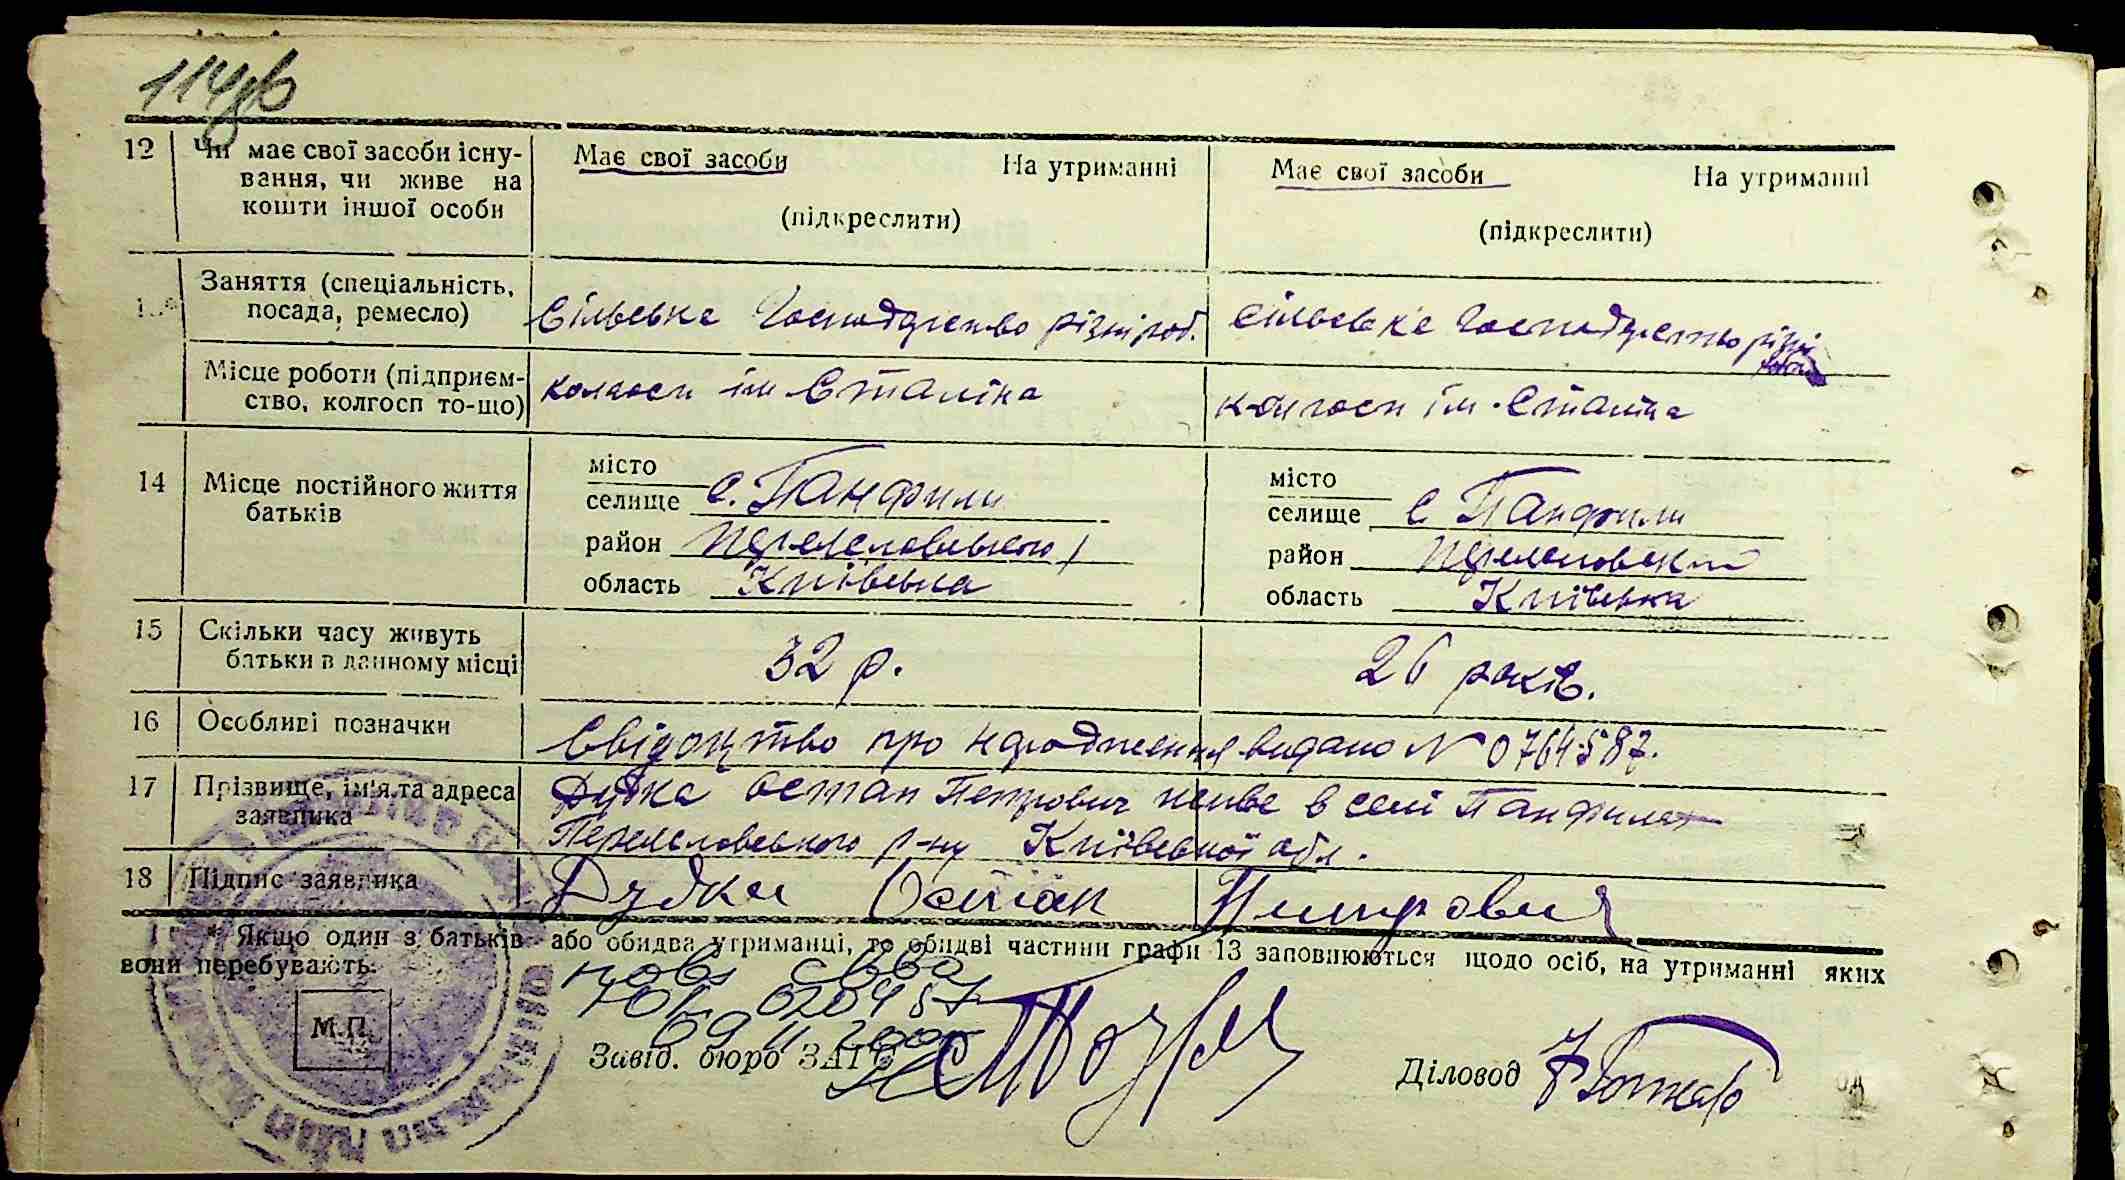 114зв
12 Чи має свої засоби існу- Має свої засоби На утриманні Має свої засоби На утриманні
вання, чи живе на
кошти іншої особи (підкреслити) (підкреслити)
Заняття (спеціальність,
посада, ремесло) Сільське господарство різні роб. Сільське господарство різні
Місце роботи (підприєм- колгосп ім Сталіна колгосп ім. Сталіна
ство, колгосп то-що)
14 Місце постійного життя місто місто
батьків селище с. Панфили селище с Панфили
район Переяславського район Переяславський
область Київська область Київська
15 Скільки часу живуть 32 р. 26 років.
батьки в данному місці
16 Особливі позначки Свідоцтво про народження видано N 0764587.
17 Прізвище, ім'я та адреса Дудка Остап Петрович живе в селі Панфилах
заявника Переяславського р-ну Київської обл.
18 Підпис заявника Дудка Остап Петрович
* Якщо один з батьків або обидва утриманці, то обидві частини графи 13 заповнюються щодо осіб, на утриманні яких
вони перебувають.
М.П.
Завід. бюро ЗАГС
Діловод